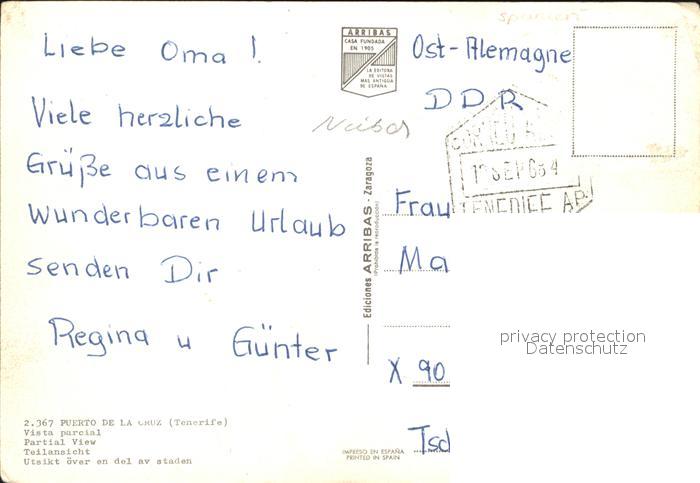 Liebe Oma !
Viele herzliche
Grüße aus einem
wunderbaren Urlaub
senden Dir
Regina u Günter
2.367 PUERTO DE LA CRUZ (Tenerife)
Vista parcial
Partial View
Teilansicht
Utsikt över en del av staden
ARRIBAS
CASA FUNDADA
EN 1905
LA EDITORA
DE VISTAS
MAS ANTIGUA
DE ESPAÑA
Ediciones ARRIBAS - Zaragoza
(Prohibida la reproducción)
IMPRESO EN ESPAÑA
PRINTED IN SPAIN
spanien
Ost-Alemagne
DDR
CORREO A
TENERIFE AP.
Frau
Ma
X 90
Tsd
privacy protection
Datenschutz